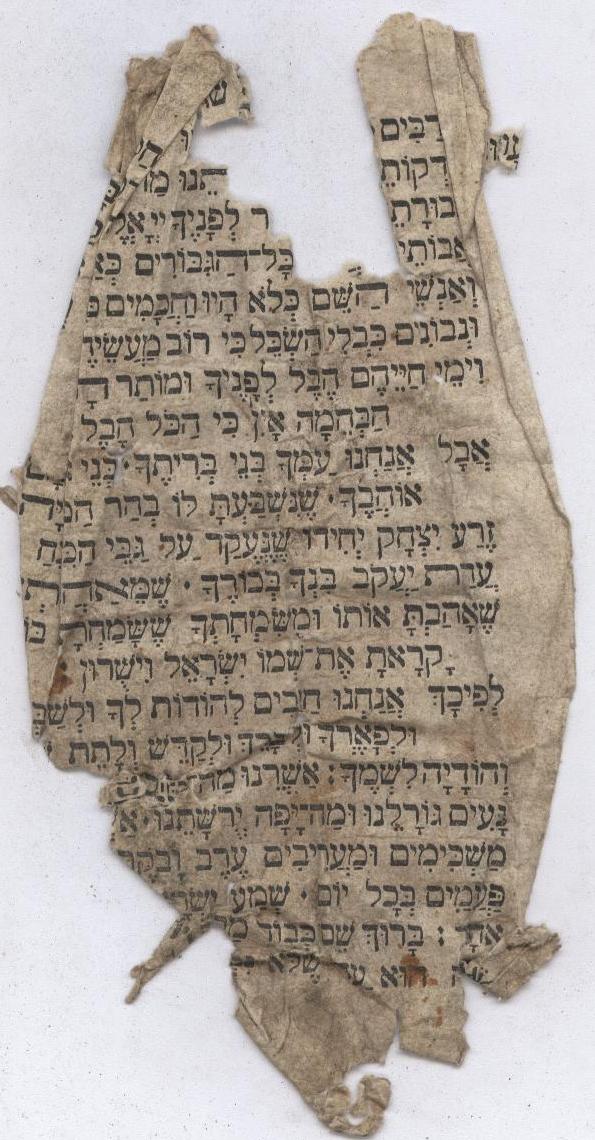 רַבִּים
דְקוֹתֵ תֵנוּ מַה
בוּרָתֵ ר לְפָנֶיךָ יְיָ אֱלֹ
אֲבוֹתֵי כָּל־הַגִּבּוֹרִים כְּאַ
וְאַנְשֵׁי הַשֵּׁם כְּלֹא הָיוּ וַחֲכָמִים כִּ
וּנְבוֹנִים כִּבְלִי הַשְׂכֵּל כִּי רוֹב מַעֲשֵׂיהֶ
וִימֵי חַיֵּיהֶם הֶבֶל לְפָנֶיךָ וּמוֹתַר הָ
הַבְּהֵמָה אָיִן כִּי הַכֹּל הָבֶל
אֲבָל אֲנַחְנוּ עַמְּךָ בְּנֵי בְרִיתֶךָ · בְּנֵי
אוֹהֲבֶךָ · שֶׁנִּשְׁבַּעְתָּ לּוֹ בְּהַר הַמּוֹרִ
זֶרַע יִצְחָק יְחִידוֹ שֶׁנֶּעֱקַד עַל גַּבֵּי הַמִּזְ
עֲדַת יַעֲקֹב בִּנְךָ בְּכוֹרֶךָ · שֶׁמֵּאַהֲבָתְ
שֶׁאָהַבְתָּ אוֹתוֹ וּמִשִּׂמְחָתְךָ שֶׁשָּׂמַחְתָּ בּוֹ
קָרָאתָ אֶת־שְׁמוֹ יִשְׂרָאֵל וִישֻׁרוּן :
לְפִיכָךְ אֲנַחְנוּ חַיָּבִים לְהוֹדוֹת לְךָ וּלְשַׁבֵּ
וּלְפָאֶרְךָ וּלְבָרֵךְ וּלְקַדֵּשׁ וְלָתֵת
וְהוֹדָיָה לִשְׁמֶךָ : אַשְׁרֵנוּ מַה
נָּעִים גּוֹרָלֵנוּ וּמַה־יָּפָה יְרֻשָּׁתֵנוּ · אַ
מַשְׁכִּימִים וּמַעֲרִיבִים עֶרֶב וָבֹקֶר
פַּעֲמַיִם בְּכָל יוֹם · שְׁמַע יִשְׂרָ
אֶחָד : בָּרוּךְ שֵׁם כְּבוֹד מַ
הוּא עַד שֶׁלֹּא